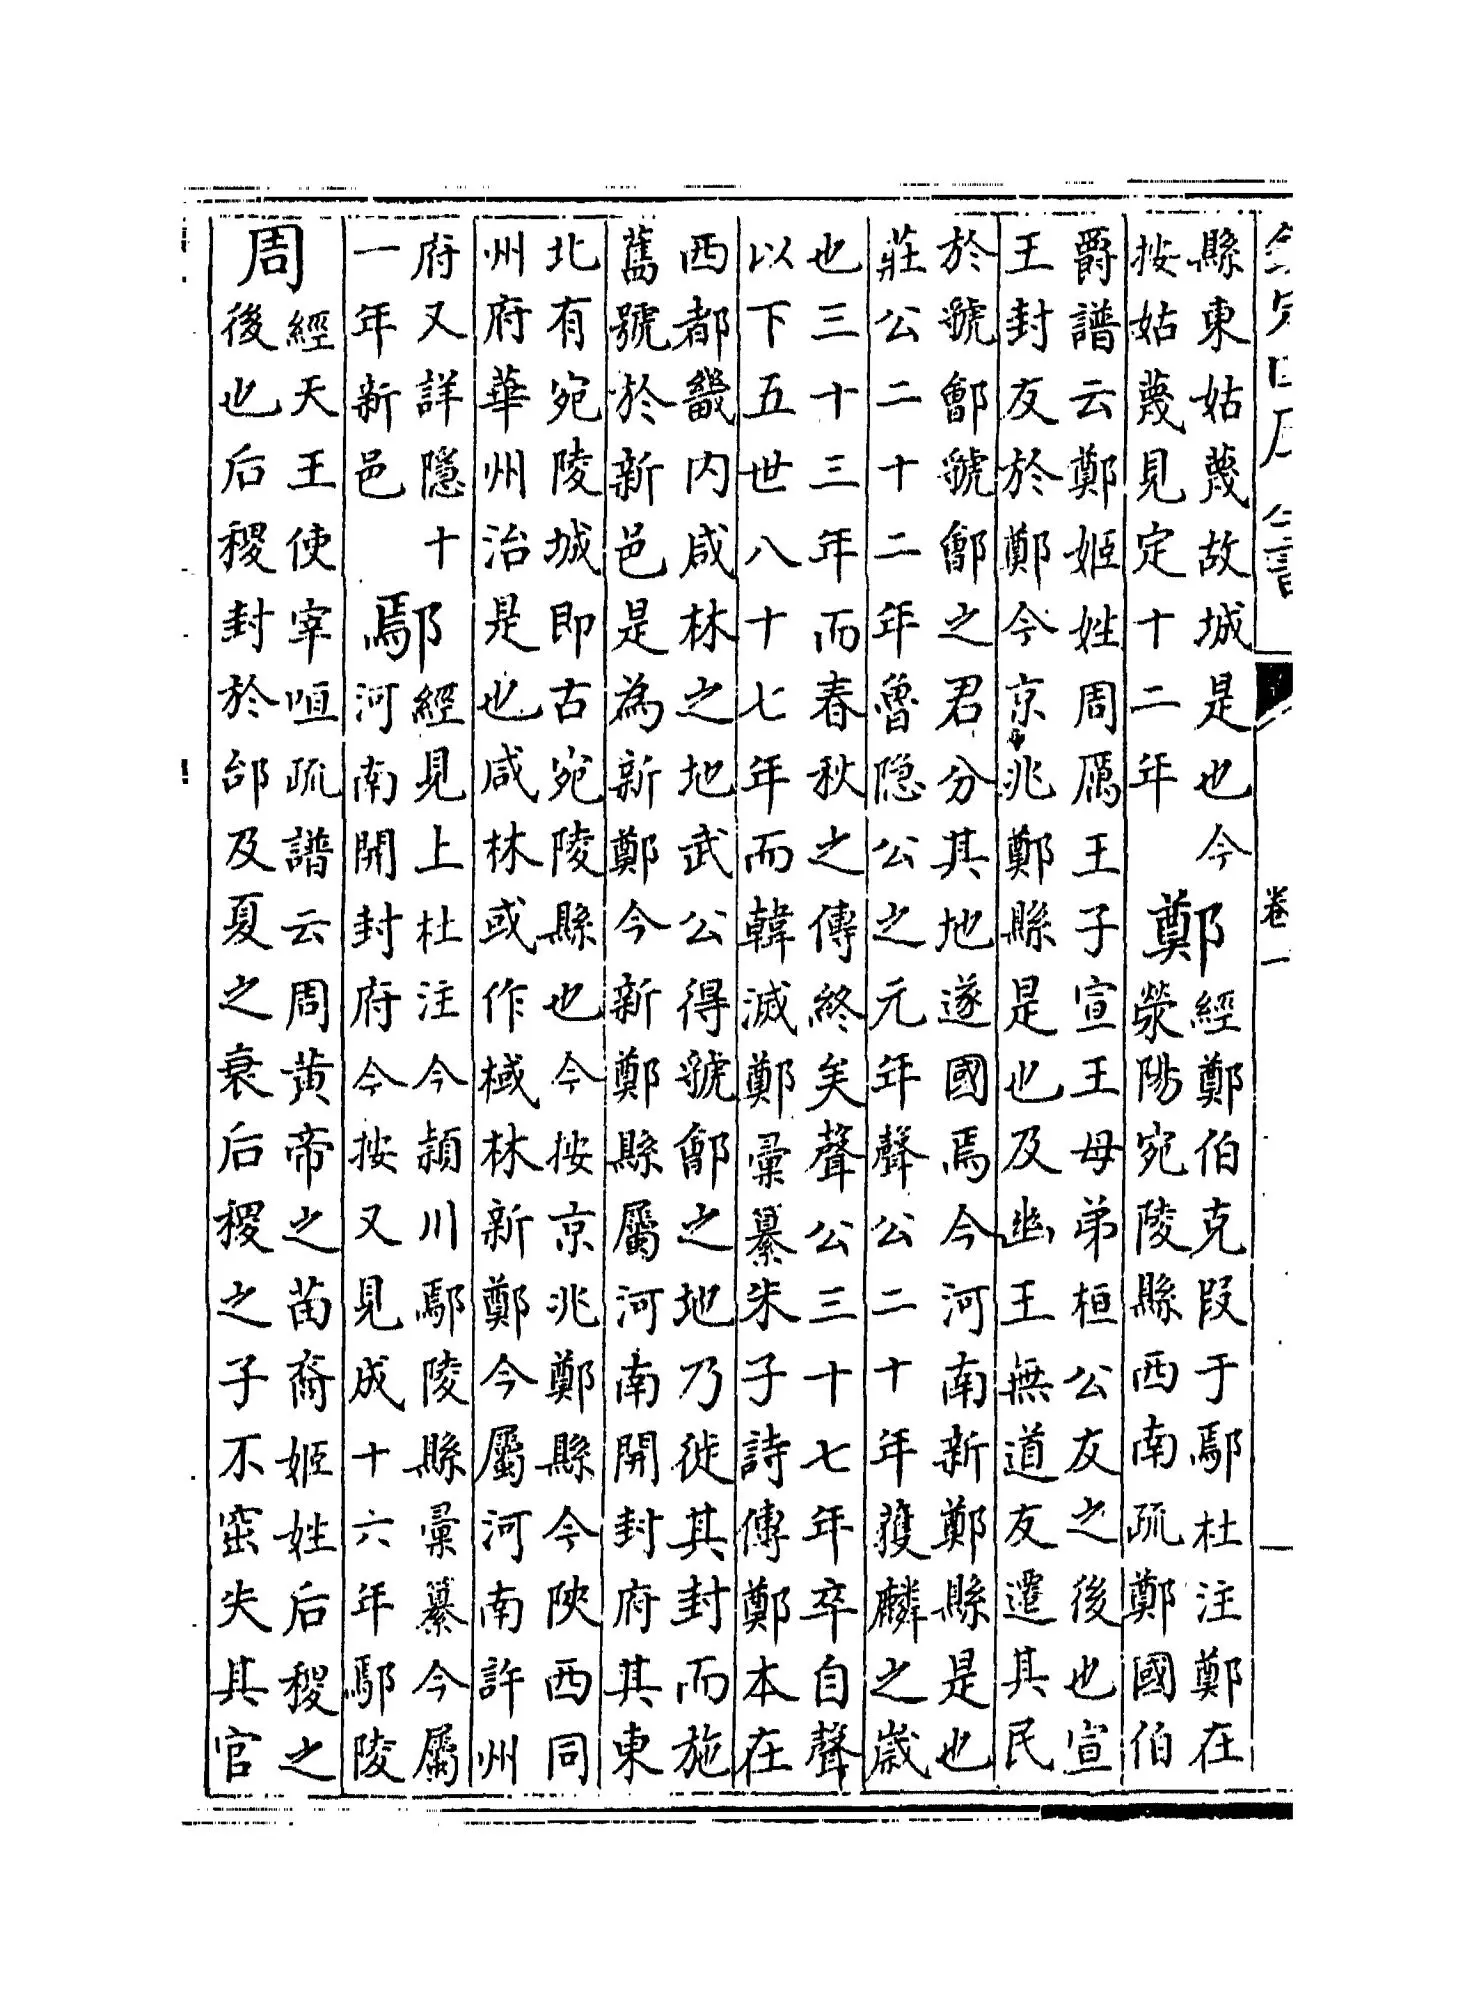 縣東姑蔑故城是也今
按姑蔑見定十二年
鄭
經鄭伯克段于鄢杜注鄭在
滎陽宛陵縣西南疏鄭國伯
爵譜云鄭姬姓周厲王子宣王母弟桓公友之後也宣
王封友於鄭今京兆鄭縣是也及幽王無道友遷其民
於虢鄶虢鄶之君分其地遂國焉今河南新鄭縣是也
莊公二十二年魯隐公之元年聲公二十年獲麟之歲
也三十三年而春秋之傳終矣聲公三十七年卒自聲
以下五世八十七年而韓滅鄭彙纂朱子詩傳鄭本在
西都畿内咸林之地武公得虢鄶之地乃徙其封而施
舊號於新邑是為新鄭今新鄭縣屬河南開封府其東
北有宛陵城即古宛陵縣也今按京兆鄭縣今陜西同
州府華州治是也咸林或作棫林新鄭今屬河南許州
府又詳隱十
一年新邑
鄢
經見上杜注今頴川鄢陵縣彙纂今屬
河南開封府今按又見成十六年鄢陵
周
經天王使宰咺疏譜云周黄帝之苗裔姬姓后稷之
後也后稷封於邰及夏之衰后稷之子不窋失其官
卷一